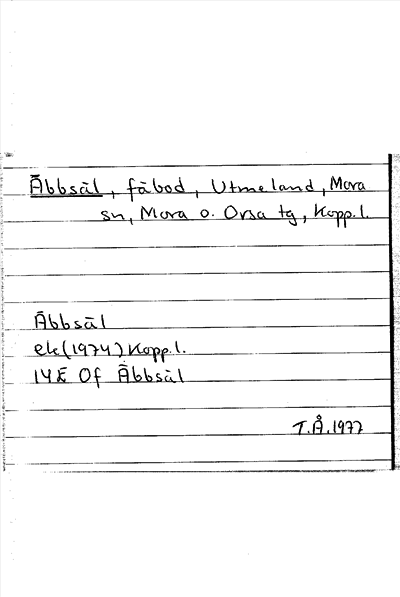 Äbbsäl, fäbod, Utmeland, Mora
sn, Mora o. Orsa tg, Kopp.l.
Äbbsäl
ek(1974)Kopp.l.
14E 0f Äbbsäl
T.Å.1977